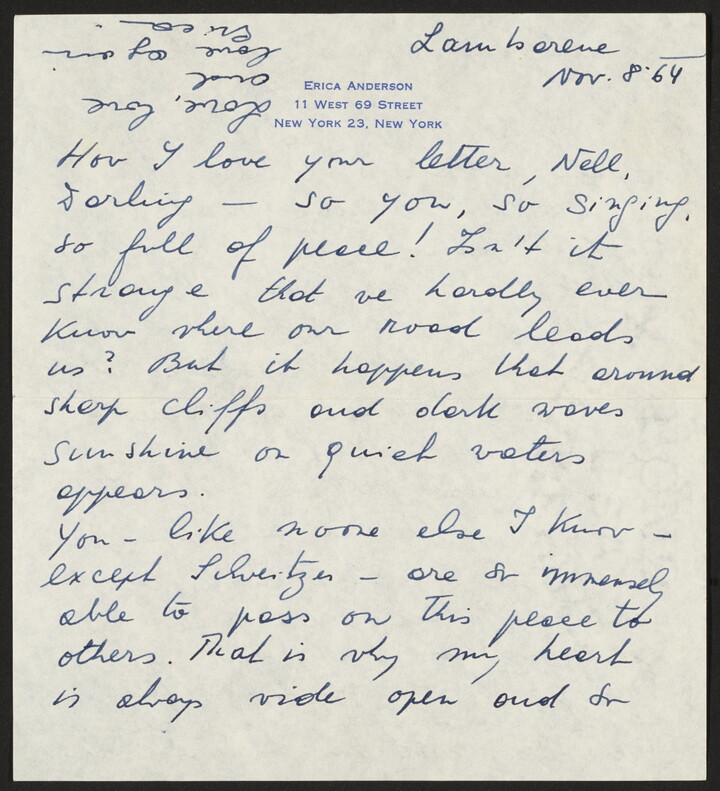 Lambarene
Nov. 8·64
ERICA ANDERSON
11 WEST 69 STREET
NEW YORK 23, NEW YORK
How I love your letter, Nell,
Darling — so you, so singing,
so full of peace! Isn't it
strange that we hardly ever
know where our road leads
us? But it happens that around
sharp cliffs and dark waves
sunshine on quiet waters
appears.
You – like noone else I know –
except Schweitzer – are so immensely
able to pass on this peace to
others. That is why my heart
is always wide open and so
Love, love
and
love again
Erica